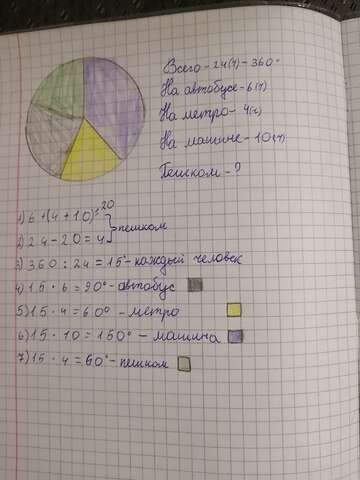 Всего - 24(ч) - 360°
На автобусе - 6(ч)
На метро - 4(ч)
На машине - 10(ч)
Пешком - ?
1) 6 + (4 + 10) = 20
2) 24 - 20 = 4 } пешком
3) 360 : 24 = 15° - каждый человек
4) 15 · 6 = 90° - автобус
5) 15 · 4 = 60° - метро
6) 15 · 10 = 150° - машина
7) 15 · 4 = 60° - пешком